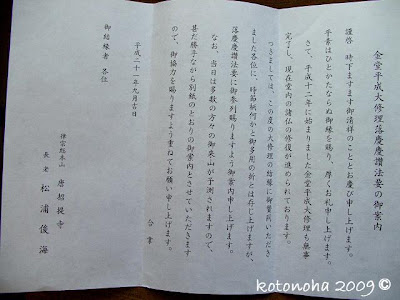 金堂平成大修理落慶慶讃法要の御案内
謹啓 時下ますます御清祥のこととお慶び申し上げます。
平素はひとかたならぬ御縁を賜り、厚くお礼申し上げます。
さて、平成十二年に始まりました金堂平成大修理も無事
完了し、現在堂内の諸仏の修復が進められております。
つきましては、この度の大修理の結縁に御賛同いただき
ました各位に、時節柄何かと御多用の折とは存じ上げますが、
落慶慶讃法要に御参列賜りますよう御案内申し上げます。
なお、当日は多数の方々の御来山が予測されますので、
甚だ勝手ながら別紙のとおりの御案内とさせていただきます
ので、御協力を賜りますよう重ねてお願い申し上げます。
合掌
平成二十一年九月吉日
律宗総本山 唐招提寺
長老 松浦俊海
御結縁者 各位
kotonoha 2009 ©